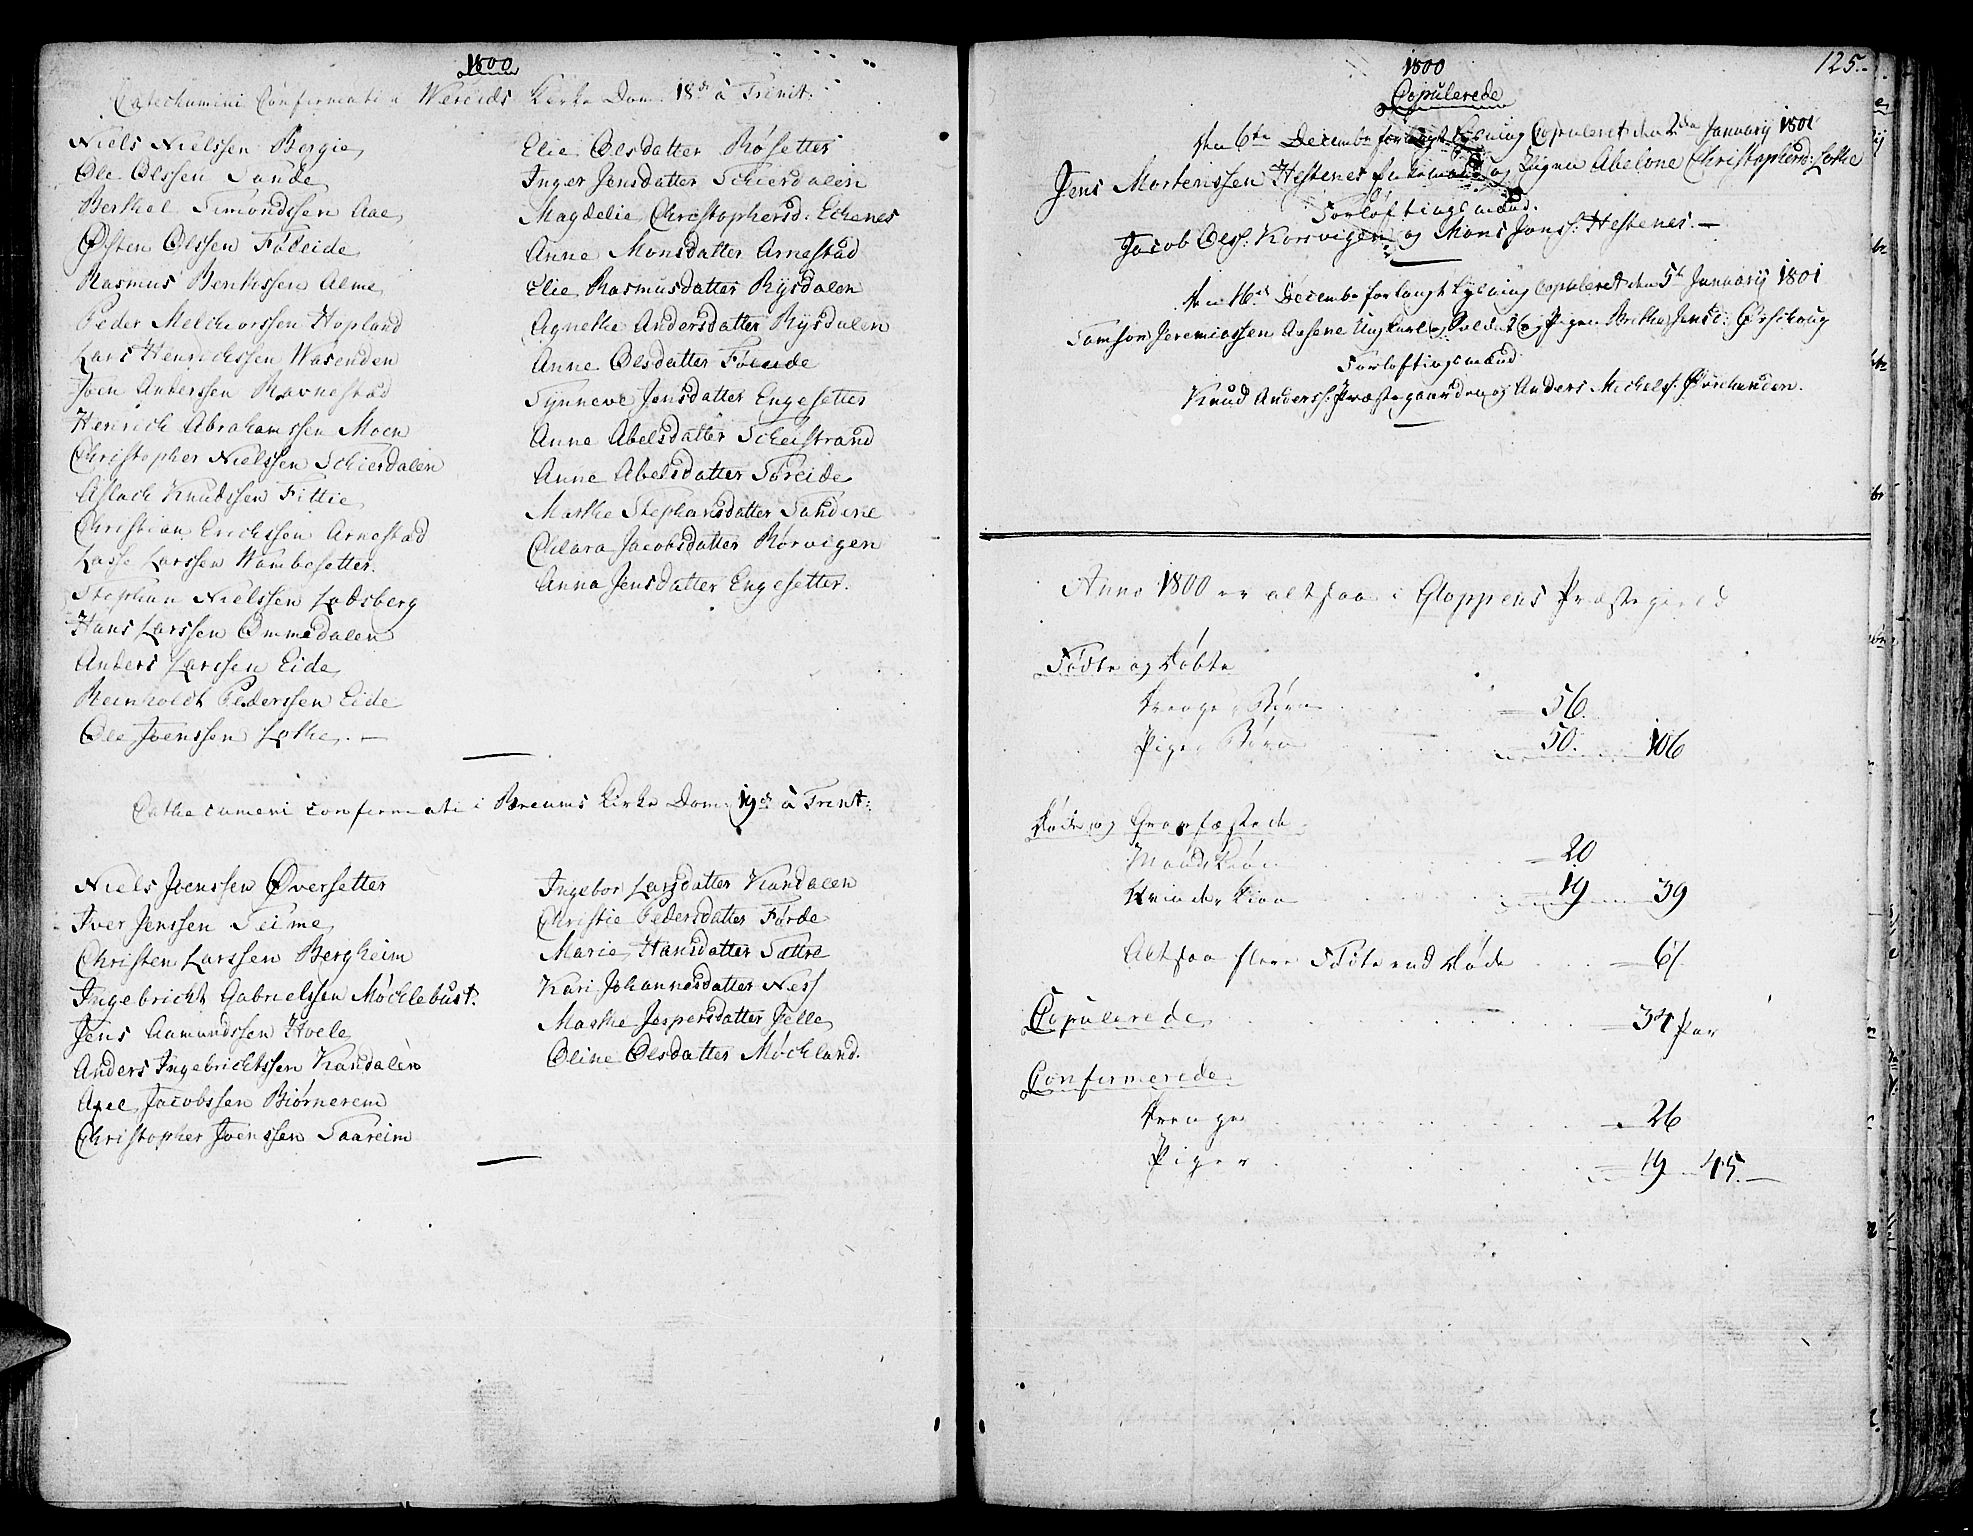 1800
Catechumini Confirmati i Wereids Kirke Dom: 18de à Trinit:
Niels Nielssen Bergie
Ole Olssen Sande
Berthel Simondssen Aae
Østen Olssen Føleide
Rasmus Bentssen Alme
Peder Melchiorssen Hopland
Lars Henrichssen Wasenden
Joen Anderssen Ravnestad
Henrich Abrahamssen Moen
Christopher Nielssen Schierdalen
Aslach Knudssen Fittie
Christian Erichssen Arnestad
Lasse Larssen Wambesetter.
Stephan Nielssen Lodsberg
Hans Larssen Ommedalen
Anders Larssen Eide
Reinholdt Pederssen Eide
Ole Joenssen Lothe. —
Elie Olsdatter Røsetter
Inger Jensdatter Schierdalen
Magdelie Christophersd: Echenes
Anne Monsdatter Arnestad
Elie Rasmusdatter Rysdalen
Agnethe Andersdatter Rysdalen
Anne Olsdatter Føleide
Synneve Jensdatter Engesetter
Anne Abelsdatter Scheistrand
Anne Abelsdatter Toreide
Marthe Stephansdatter Sandene
Chlara Jacobsdatter Rørvigen
Anna Jensdatter Engesetter.
Cathecumeni confirmati i Breums Kirke Dom: 19de à Trinit:
Niels Joenssen Øversetter
Iver Jenssen Seime
Christen Larssen Bergheim
Ingebricht Gabrielssen Møchlebust.
Jens Aamundssen Hoele
Anders Ingebrichtssen Kandalen
Abel Jacobssen Biørnereim
Christopher Joenssen Saareim
Ingebor Larsdatter Kandalen
Christie Pedersdatter Førde
Marie Hansdatter Sættre
Kari Johannesdatter Ness
Marthe Jespersdatter Felle
Oline Olsdatter Møchland.
125.
1800
Copulerede
Den 6te Decembr forlangt Lysning Copuleret den 2den Januarij 1801
Jens Mortenssen Hestenes Enkemand og Pigen Abelone Christophersd: Lothe
Forløftingsmænd.
Jacob Olss: Rørvigen og Mons Jonss: Hestenes. —
Den 16de Decembr forlangt Lysning Copuleret den 5te Januarij 1801
Samson Jeremiassen Aasene Ungkarl og Soldat og Pigen Brithe Jensd: Ørschoug
Forløftingsmænd
Knud Anderss: Præstegaarden og Anders Michelss: Øvrelunden.
Anno 1800 er altsaa i Gloppens Præstegield
Fødte og Døbte
Drenge Børn 56.
Pige Børn 50. 106
Døde og Gravfæstede
Mandkiøn 20
Kvindekiøn 19 39
Altsaa flere Fødte end Døde 67
Copulerede 34 Par
Confirmerede
Drenge 26
Piger 19 45. —